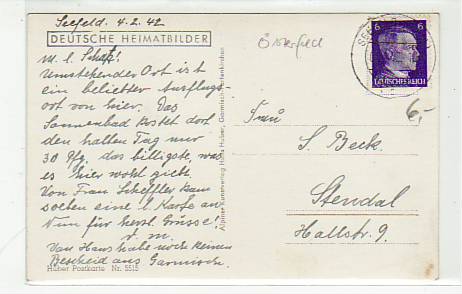 Seefeld. 4.2.42
DEUTSCHE HEIMATBILDER
M. l. Schatz!
Umstehender Ort ist
ein beliebter Ausflugs-
ort von hier. Das
Sonnenbad kostet dort
den halben Tag nur
30 Pfg. das billigste, was
es hier wohl giebt.
Von Frau Scheffler kam
soeben eine l. Karte an
Nun für herzl. Grüsse!
d. m.
Von Hans habe noch keinen
Bescheid aus Garmisch.
Huber Postkarte Nr. 5515
Alpiner Kunstverlag Hans Huber, Garmisch-Partenkirchen
6 6
DEUTSCHES REICH
6,-
Frau
S. Beck
Stendal
Hallstr. 9.